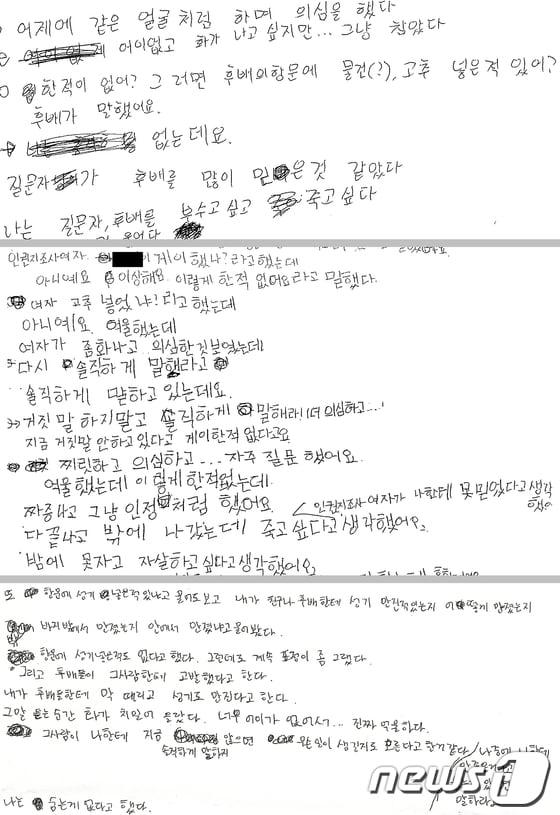 어제에 같은 얼굴처럼 하며 의심을 했다
어이없고 화가 나고 싶지만... 그냥 참았다
한적이 없어? 그러면 후배의항문에 물건(?), 고추 넣은적 있어?
후배가 말했어요.
없는데요.
질문자가 후배를 많이 믿은것 같았다
나는 질문자, 후배를 부수고 싶고 죽고 싶다
인권지조사여자 이게이 했나? 라고했는데
아니예요 이상해요. 이렇게 한적 없어요라고 말했다.
여자 고추 넣었냐? 라고 했는데
아니여요. 억울했는데
여자가 좀화나고.. 의심한것 보였는데
다시 솔직하게 말해라고
솔직하게 말하고 있는데요.
거짓말 하지말고 솔직하게 말해라! (더 의심하고...)
지금 거짓말 안하고있다고 게이한적 없다고요
찌릿하고 의심하고... 자주 질문 했어요.
억울했는데 이렇게한적없는데
짜증나고 그냥 인정처럼 했어요. 인권지조사 여자가 나한테 못믿었다고생각했어
다 끝나고 밖에 나갔는데 죽고싶다고생각했어요.
밤에 못자고 자살하고싶다고생각했어요.
또 항문에 성기 넣은적있냐고 물어도보고 내가 친구나 후배한테 성기 만진적있는지 어떻게 만졌는지
바지밖에서 만졌는지 안에서 만졌냐고물어봤다.
항문에 성기넣은적도 없다고했다. 그런데도 계속 표정이 좀 그랬다.
그리고 후배들이 그사람한테 고발했다고 한다.
내가 후배들한테 막 때리고 성기도 만진다고 한다.
그말 듣는순간 화가 치밀어 올랐다. 너무 어이가 없어서... 진짜 억울하다.
그사람이 나한테 지금 솔직하게 말하지 않으면 일이 생길지도 모른다고 한거같다
말하라고
나는 숨는게 없다고 했다.
news1